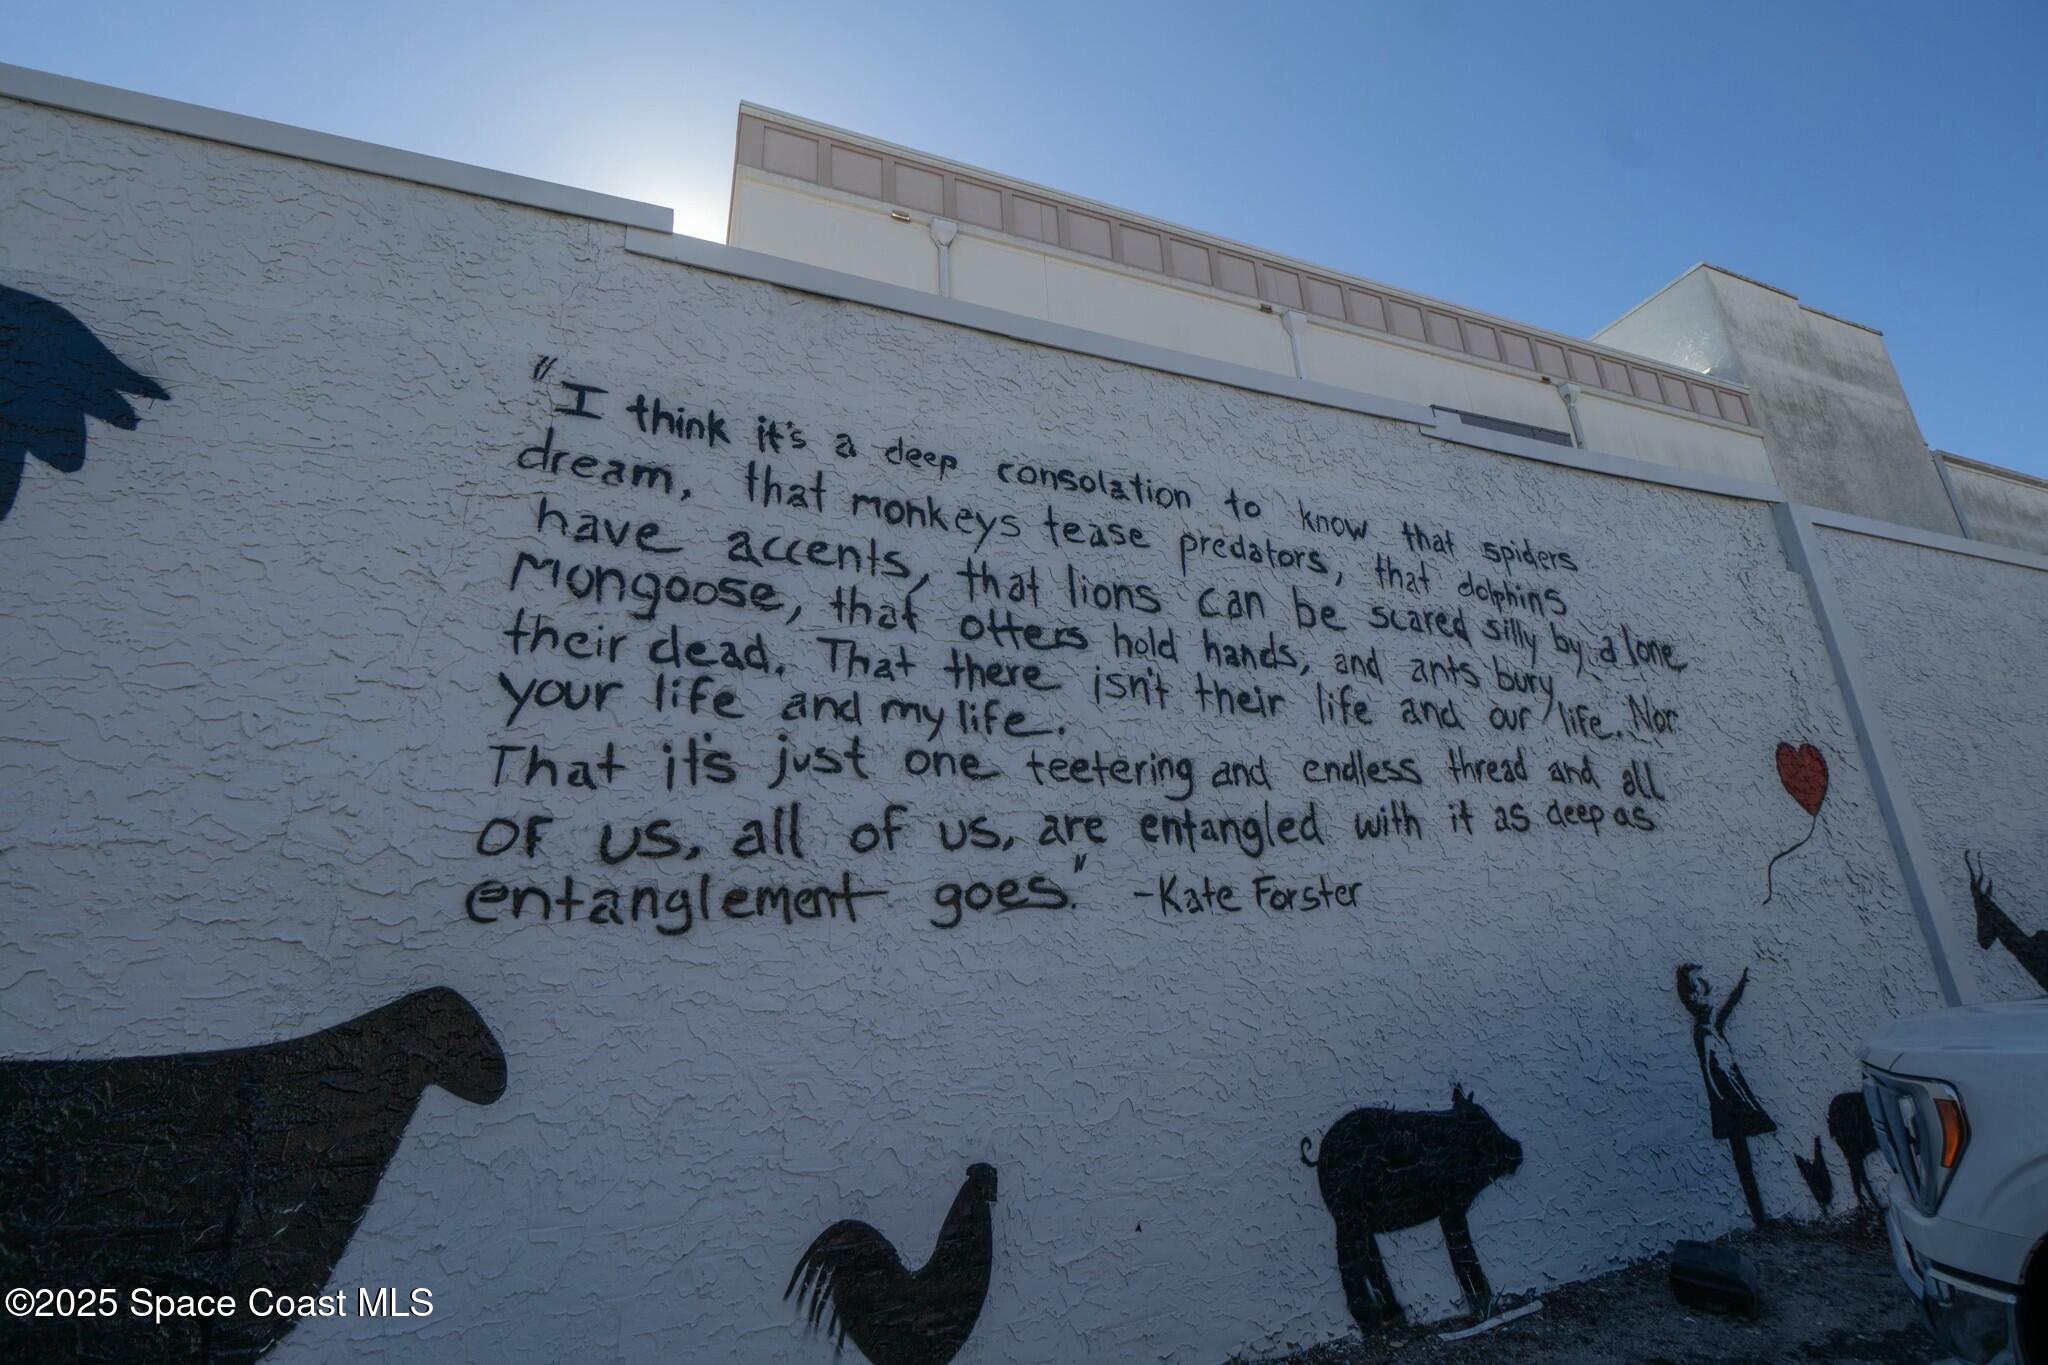 "I think it's a deep consolation to know that spiders
dream, that monkeys tease predators, that dolphins
have accents, that lions can be scared silly by a lone
mongoose, that otters hold hands, and ants bury
their dead. That there isn't their life and our life. Nor
your life and my life.
That it's just one teetering and endless thread and all
of us, all of us, are entangled with it as deep as
entanglement goes." -Kate Forster
©2025 Space Coast MLS